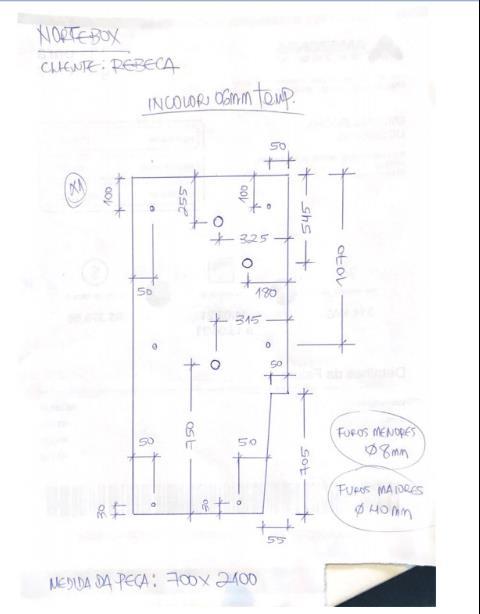 NORTEBOX
CLIENTE: REBECA
INCOLOR 06mm temp.
50
X1
100
255
100
545
325
1070
50
180
315
50
50
750
50
705
FUROS MENORES
Ø8mm
FUROS MAIORES
Ø40mm
30
30
55
MEDIDA DA PEÇA: 700X2100